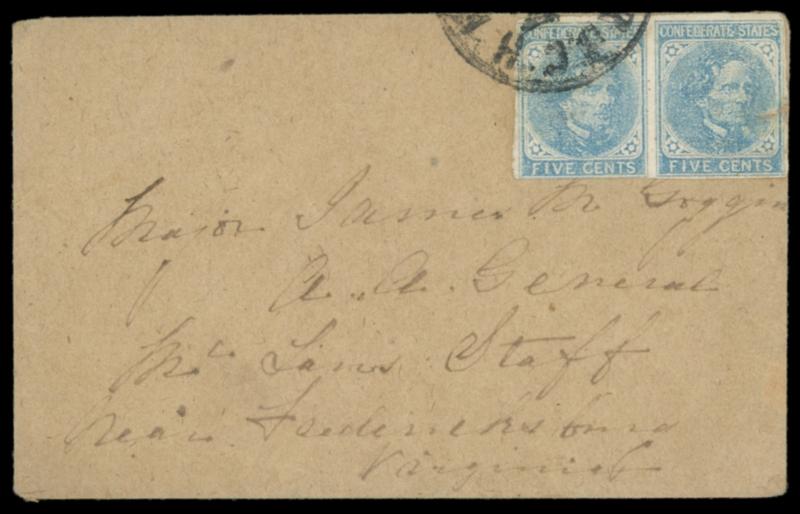 CONFEDERATE STATES
CONFEDERATE STATES
FIVE CENTS
FIVE CENTS
Major James M Goggin
A. A. General
Mc Laws Staff
Near Fredericksburg
Virginia